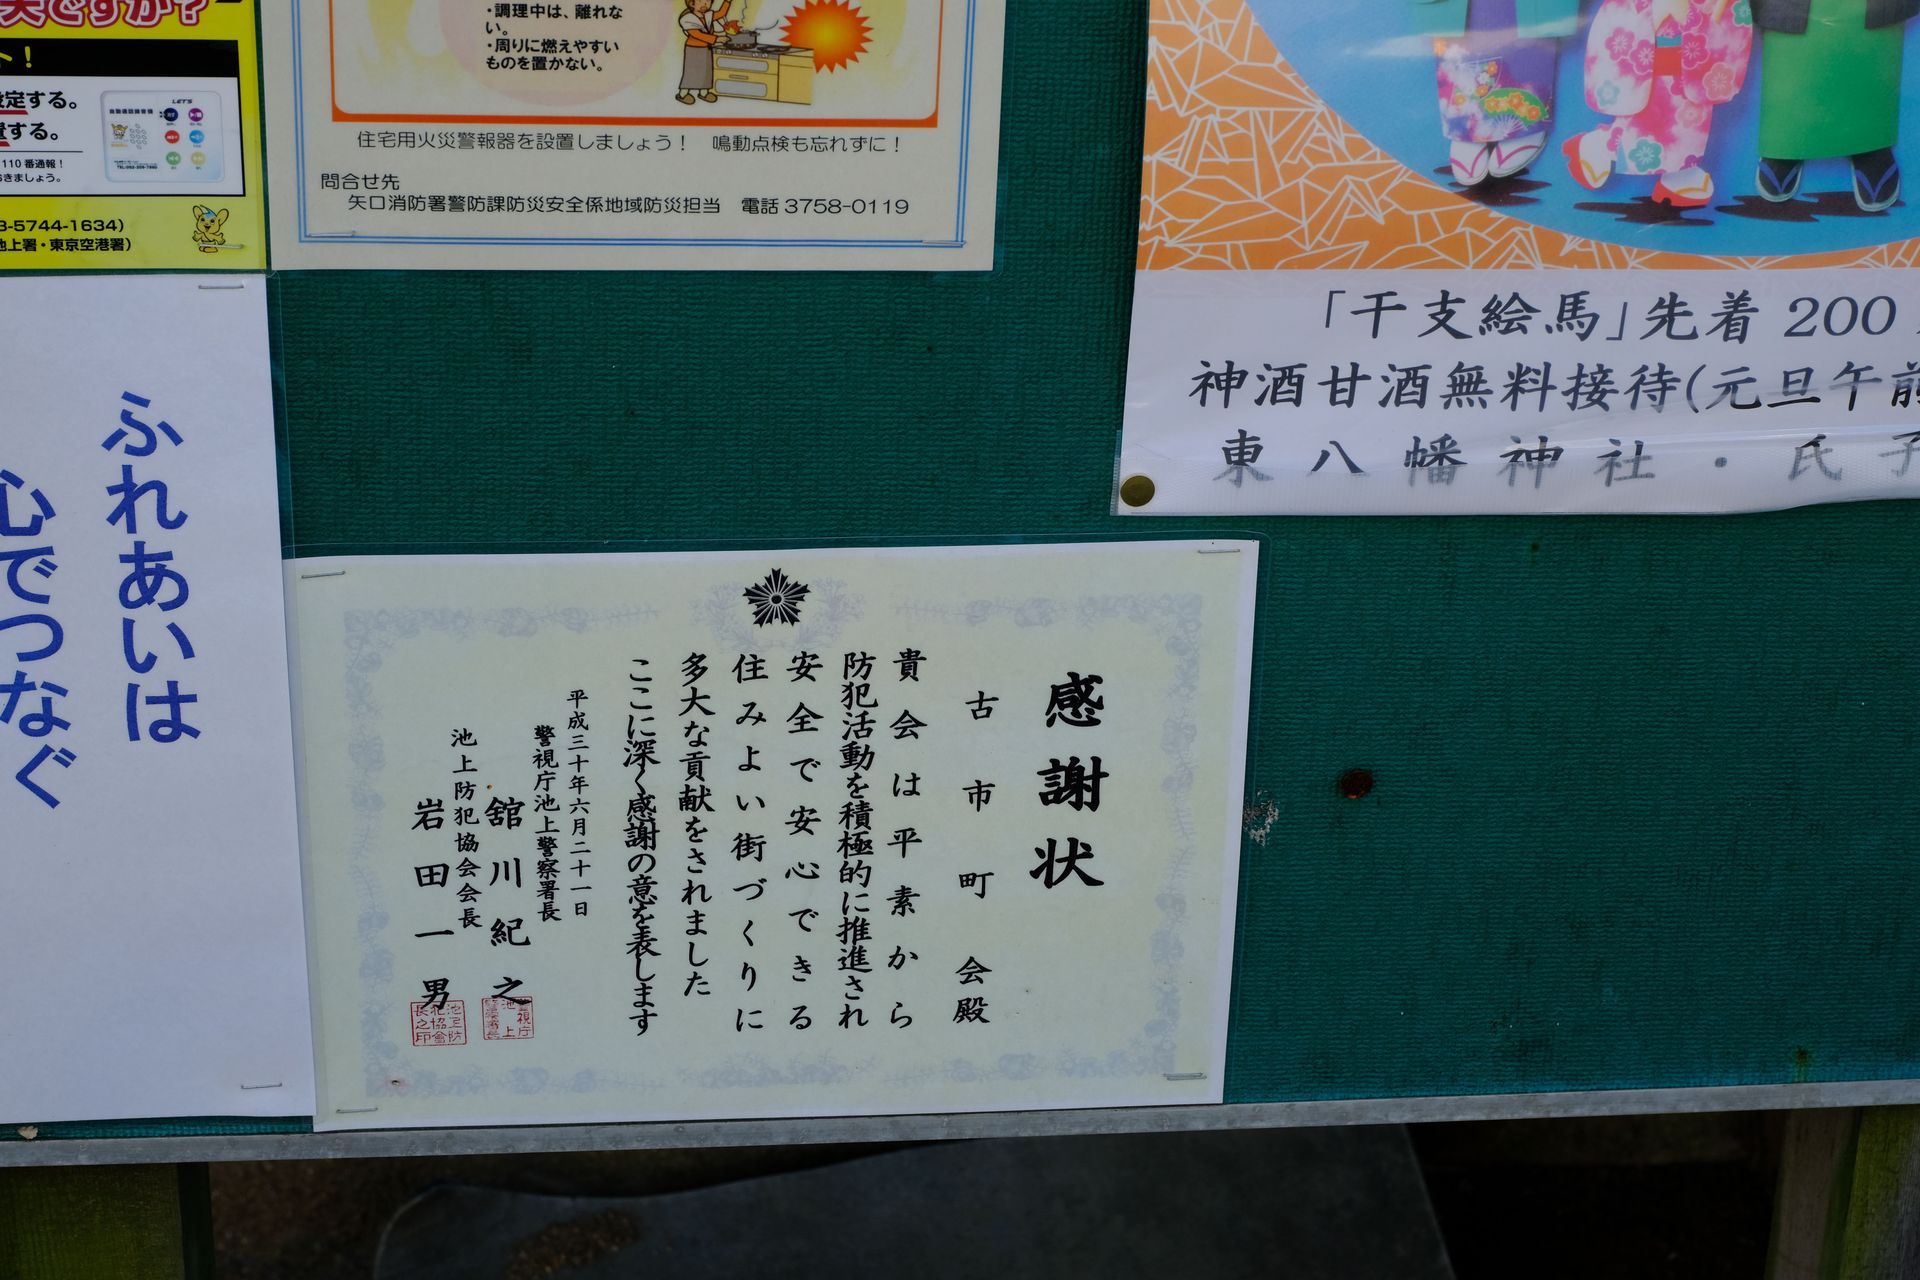 夫ですか？
ト！
設定する。
置する。
110番通報！
おきましょう。
LET'S
3-5744-1634)
池上署・東京空港署）
・調理中は、離れな
い。
・周りに燃えやすい
ものを置かない。
住宅用火災警報器を設置しましょう！　鳴動点検も忘れずに！
問合せ先
矢口消防署警防課防災安全係地域防災担当　電話 3758-0119
「干支絵馬」先着 200
神酒甘酒無料接待(元旦午前
東八幡神社・氏子
ふれあいは
心でつなぐ
感謝状
古市町会殿
貴会は平素から
防犯活動を積極的に推進され
安全で安心できる
住みよい街づくりに
多大な貢献をされました
ここに深く感謝の意を表します
平成三十年六月二十一日
警視庁池上警察署長
舘川紀之
池上防犯協会会長
岩田一男